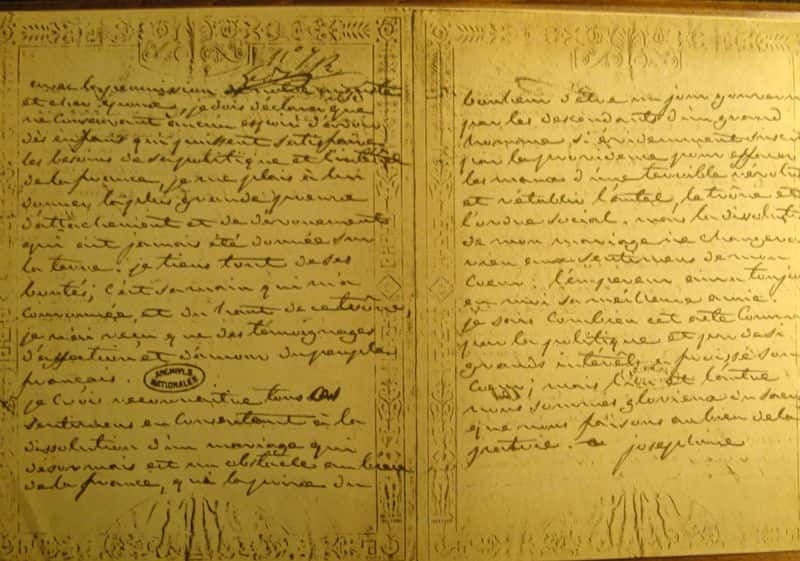 avec la permission de notre auguste
et cher époux, je dois déclarer que
ne conservant aucun espoir d'avoir
des enfans qui puissent satisfaire
les besoins de sa politique et l'intérêt
de la france, je me plais à lui
donner la plus grande preuve
d'attachement et de dévouement
qui ait jamais été donnée sur
la terre. je tiens tout de ses
bontés; c'est sa main qui m'a
couronnée, et du haut de ce trône,
je n'ai reçu que des témoignages
d'affection et d'amour du peuple
français.
ARCHIVES NATIONALES
je crois reconnaitre tous ces
sentimens en consentant à la
dissolution d'un mariage qui
désormais est un obstacle au bien
de la france, qui la prive du
bonheur d'être un jour gouvern
par les descendants d'un grand
homme, si évidemment suscit
par la providence pour effacer
les maux d'une terrible révolu
et rétablir l'autel, le trône et
l'ordre social. mais la dissoluti
de mon mariage ne changera
rien aux sentimens de mon
coeur: l'empereur aura toujou
en moi sa meilleure amie.
je sais combien cet acte comm
par la politique et par de si
grands intérêts a froissé son
coeur; mais l'un et l'autre
nous sommes glorieux du sacri
que nous faisons au bien de la
patrie.
joséphine